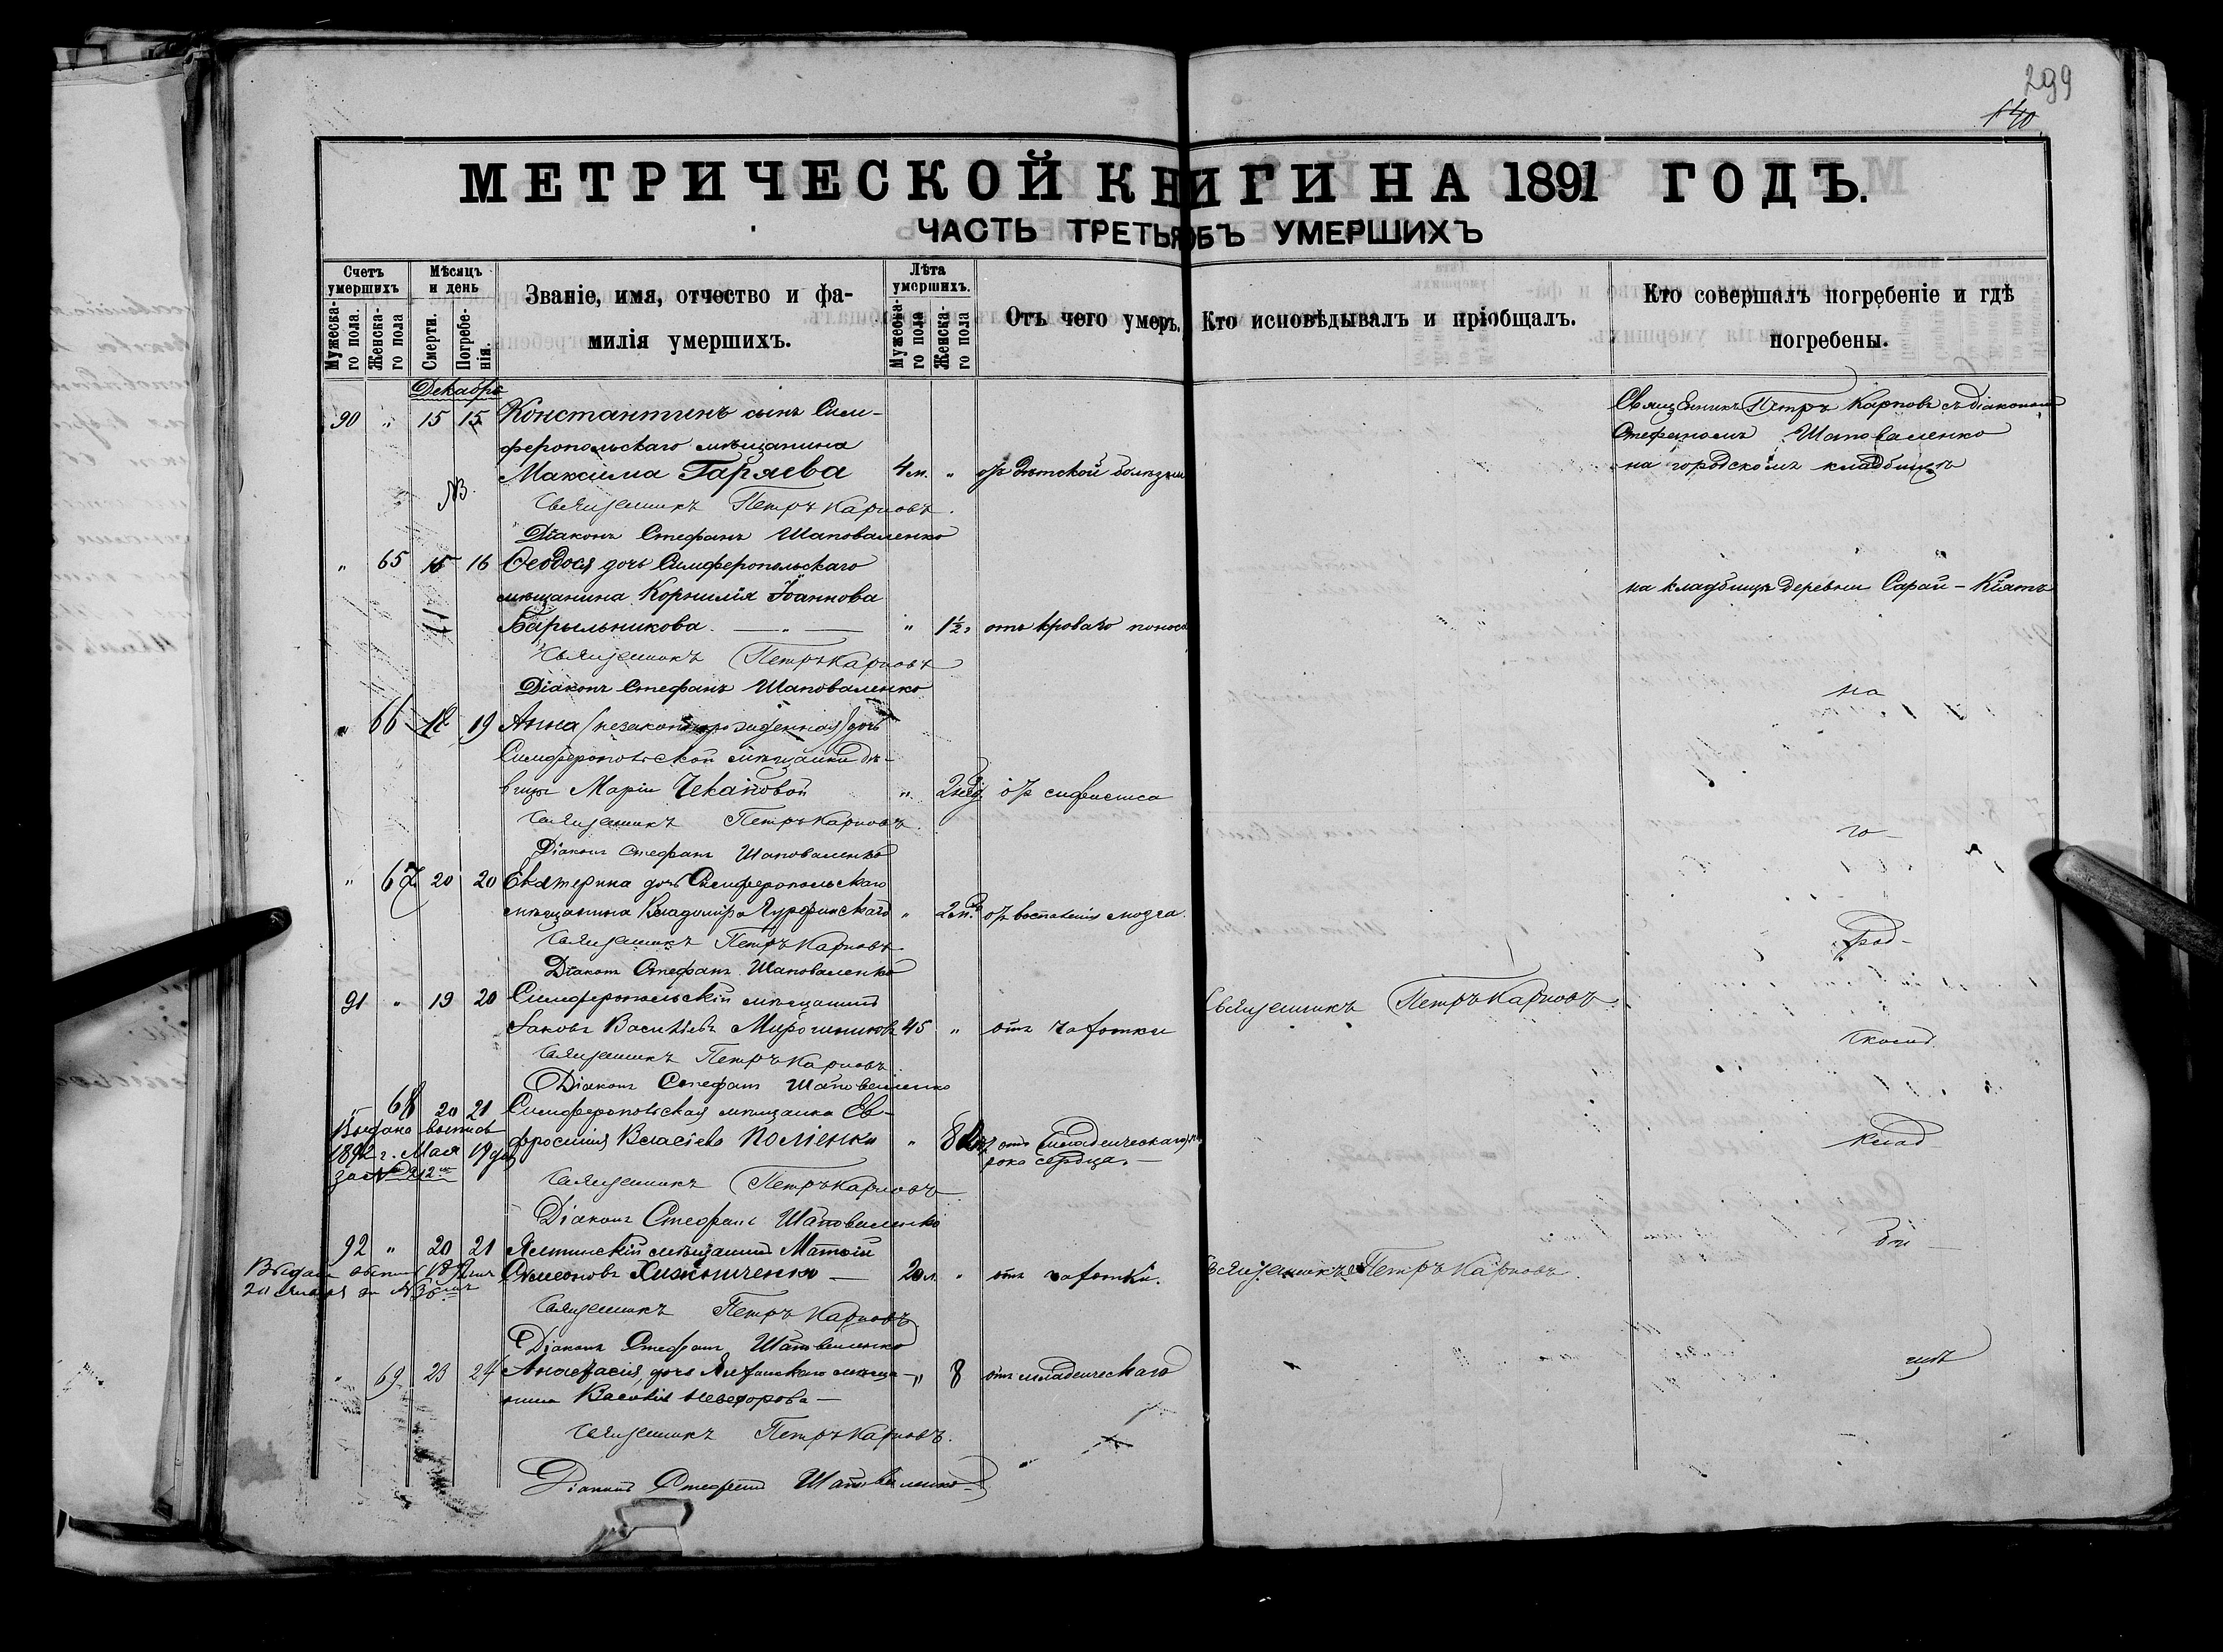 299
140
МЕТРИЧЕСКОЙ КНИГИ НА 1891 ГОДЪ.
ЧАСТЬ ТРЕТЬЯ ОБЪ УМЕРШИХЪ
Счетъ умершихъ
Мужеска-го пола.
Женска-го пола
Мѣсяцъ и день
Смерти.
Погребе-нія.
Званіе, имя, отчество и фа-
милія умершихъ.
Лѣта умершихъ.
Мужеска-го пола
Женска-го пола
Отъ чего умеръ.
Кто исповѣдывалъ и пріобщалъ.
Кто совершалъ погребеніе и гдѣ
погребены.
Декабрь
90 " 15 15 Константинъ сынъ Сим-
феропольскаго мѣщанина
Максима Гаряева 4 м. " отъ дѣтской болѣзни
Священникъ Петръ Карповъ съ діакономъ
Стефаномъ Шаповаленко
на городскомъ кладбищѣ
Священникъ Петръ Карповъ.
Діаконъ Стефанъ Шаповаленко
" 65 15 16 Ѳеодосія дочь Симферопольскаго
мѣщанина Корнилія Іоаннова
Барыльникова " 1½ отъ кроваго поноса
на кладбищѣ деревни Сарай-Кіятъ
Священникъ Петръ Карповъ
Діаконъ Стефанъ Шаповаленко
" 66 18 19 Анна (незаконнорожденная) дочь
Симферопольской мѣщанки дѣ-
вицы Маріи Чекановой " 2 нед. отъ сифилиса
на
Священникъ Петръ Карповъ.
Діаконъ Стефанъ Шаповаленко
го-
" 67 20 20 Екатерина дочь Симферопольскаго
мѣщанина Владиміра " 2 м. отъ воспаленія мозга.
Священникъ Петръ Карповъ
Діаконъ Стефанъ Шаповаленко
род-
91 " 19 20 Симферопольскій мѣщанинъ
Іаковъ Васильевъ Мирошниковъ 45 " отъ чахотки
Священникъ Петръ Карповъ
Священникъ Петръ Карповъ
Діаконъ Стефанъ Шаповаленко
скомъ
" 68 20 21 Симферопольская мѣщанка Ев-
фросинія Власіева " отъ
рока сердца.
Выдано
1892 г. Мая 19 дня
за №
Священникъ Петръ Карповъ
Діаконъ Стефанъ Шаповаленко
клад
92 " 20 21 Ялтинскій мѣщанинъ Матѳій
Симеоновъ 20 л. " отъ чахотки.
Священникъ Петръ Карповъ.
Священникъ Петръ Карповъ
Діаконъ Стефанъ Шаповаленко
би-
" 69 23 24 Анастасія, дочь мѣща-
нина Василія " 8 отъ младенческаго
щѣ
Священникъ Петръ Карповъ.
Діаконъ Стефанъ Шаповаленко